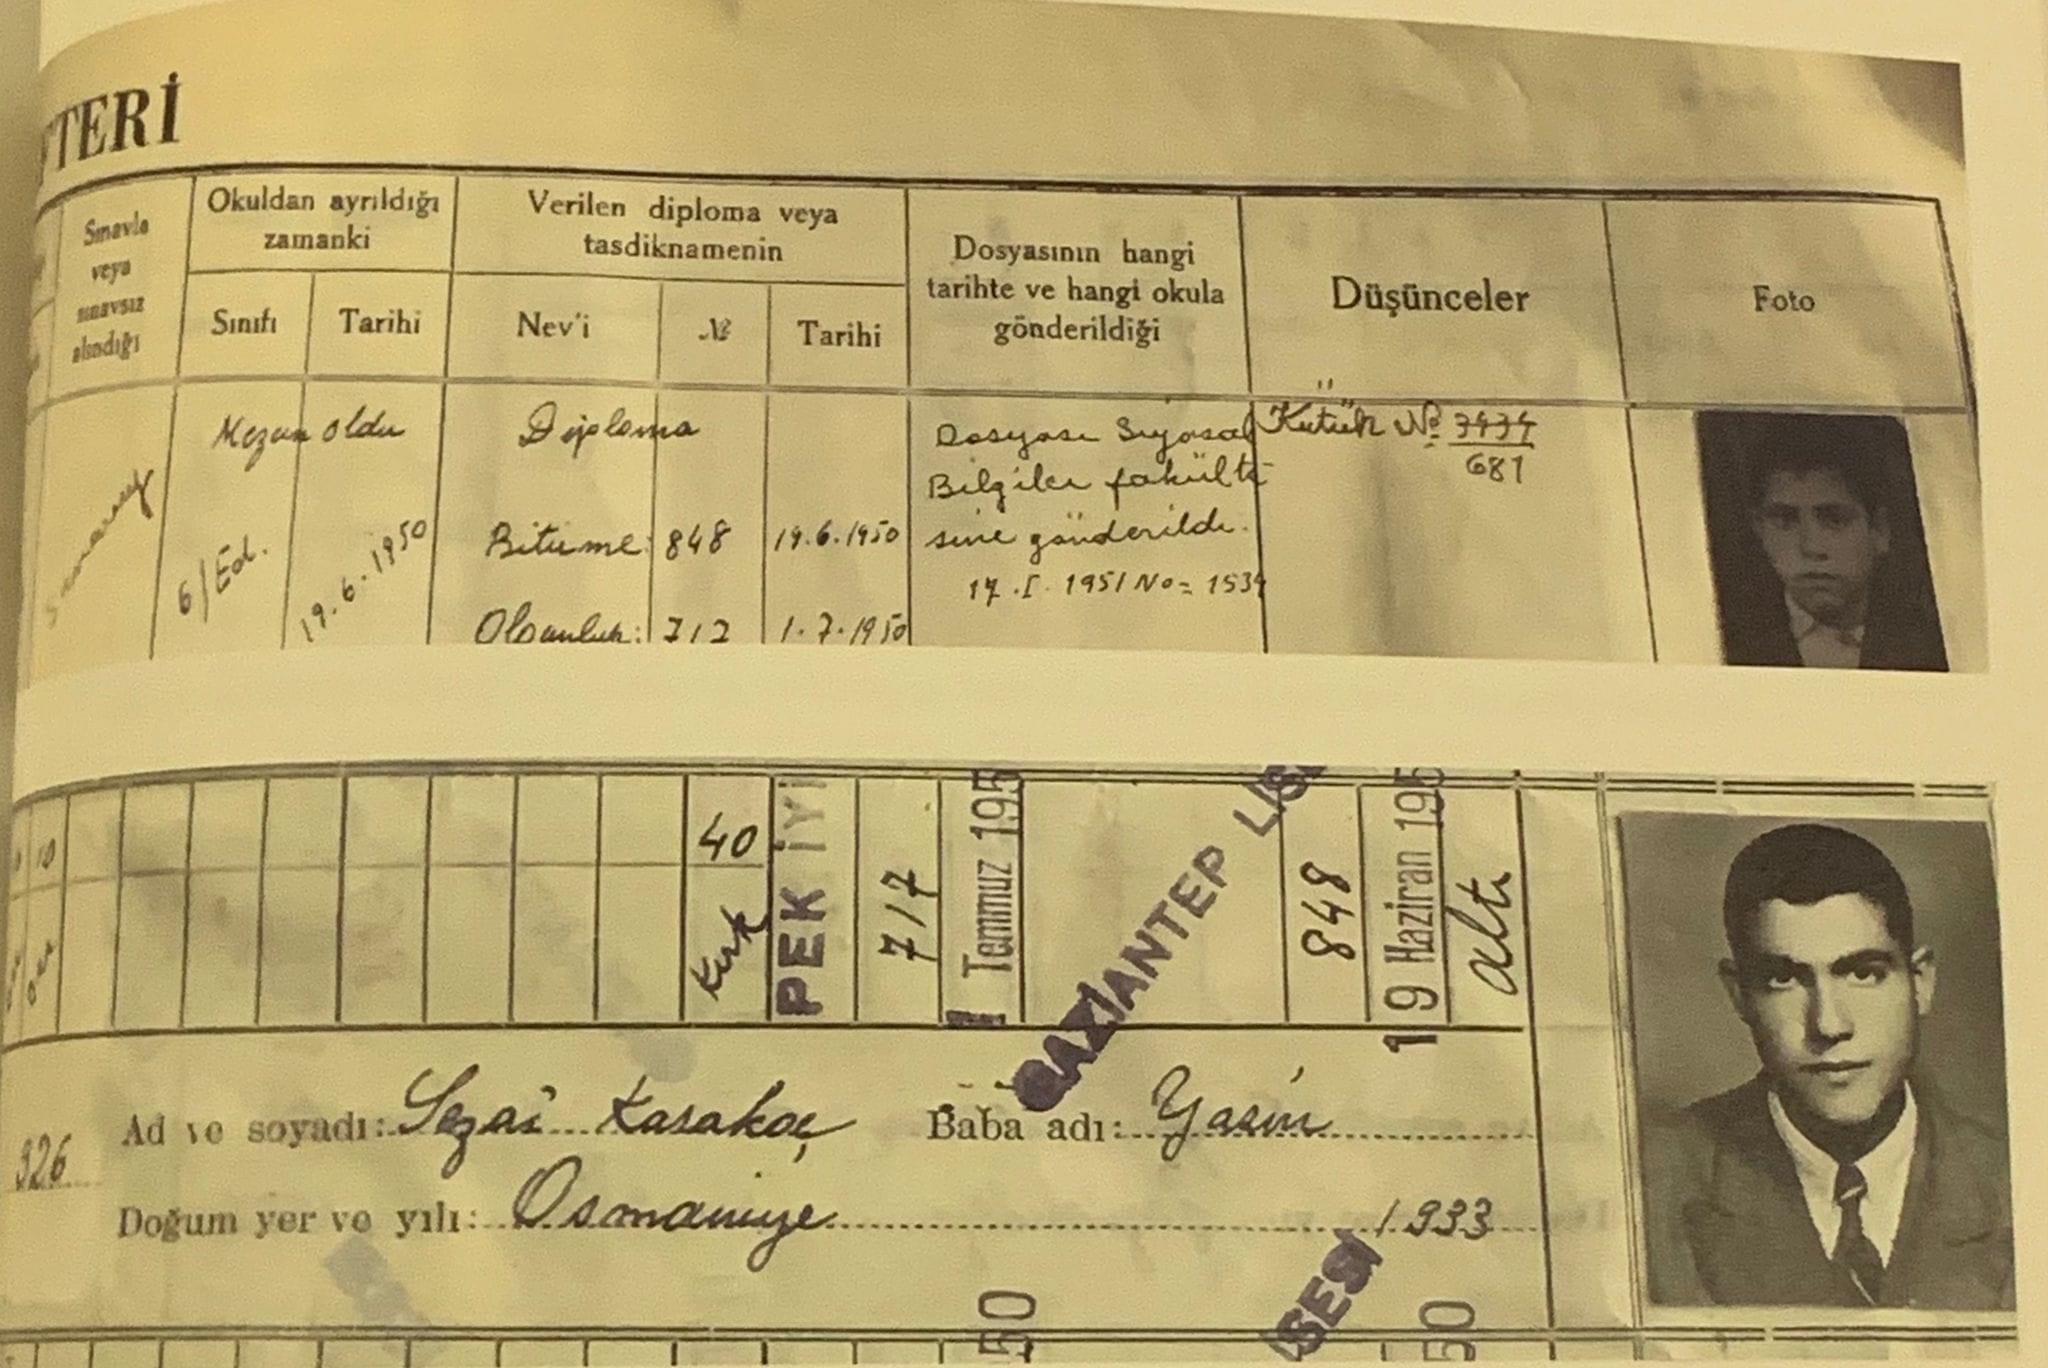 TERİ
Sınavla veya sınavsız alındığı
Okuldan ayrıldığı zamanki
Sınıfı
Tarihi
Verilen diploma veya tasdiknamenin
Nev'i
№
Tarihi
Dosyasının hangi tarihte ve hangi okula gönderildiği
Düşünceler
Foto
Mezun oldu
6/Ed.
19.6.1950
Diploma
Bitirme: 848 19.6.1950
Olgunluk: 717 1.7.1950
Dosyası Siyasal
Bilgiler fakülte
sine gönderildi.
17.I.1951 No=
Kütük №
681
10
on
40
Kırk
PEK İYİ
717
1 Temmuz 195
GAZİANTEP LİSE
848
19 Haziran 195
altı
926
Ad ve soyadı: Sezai Karakoç Baba adı: Yasin
Doğum yer ve yılı: Osmaniye 1933
50
SESİ
50